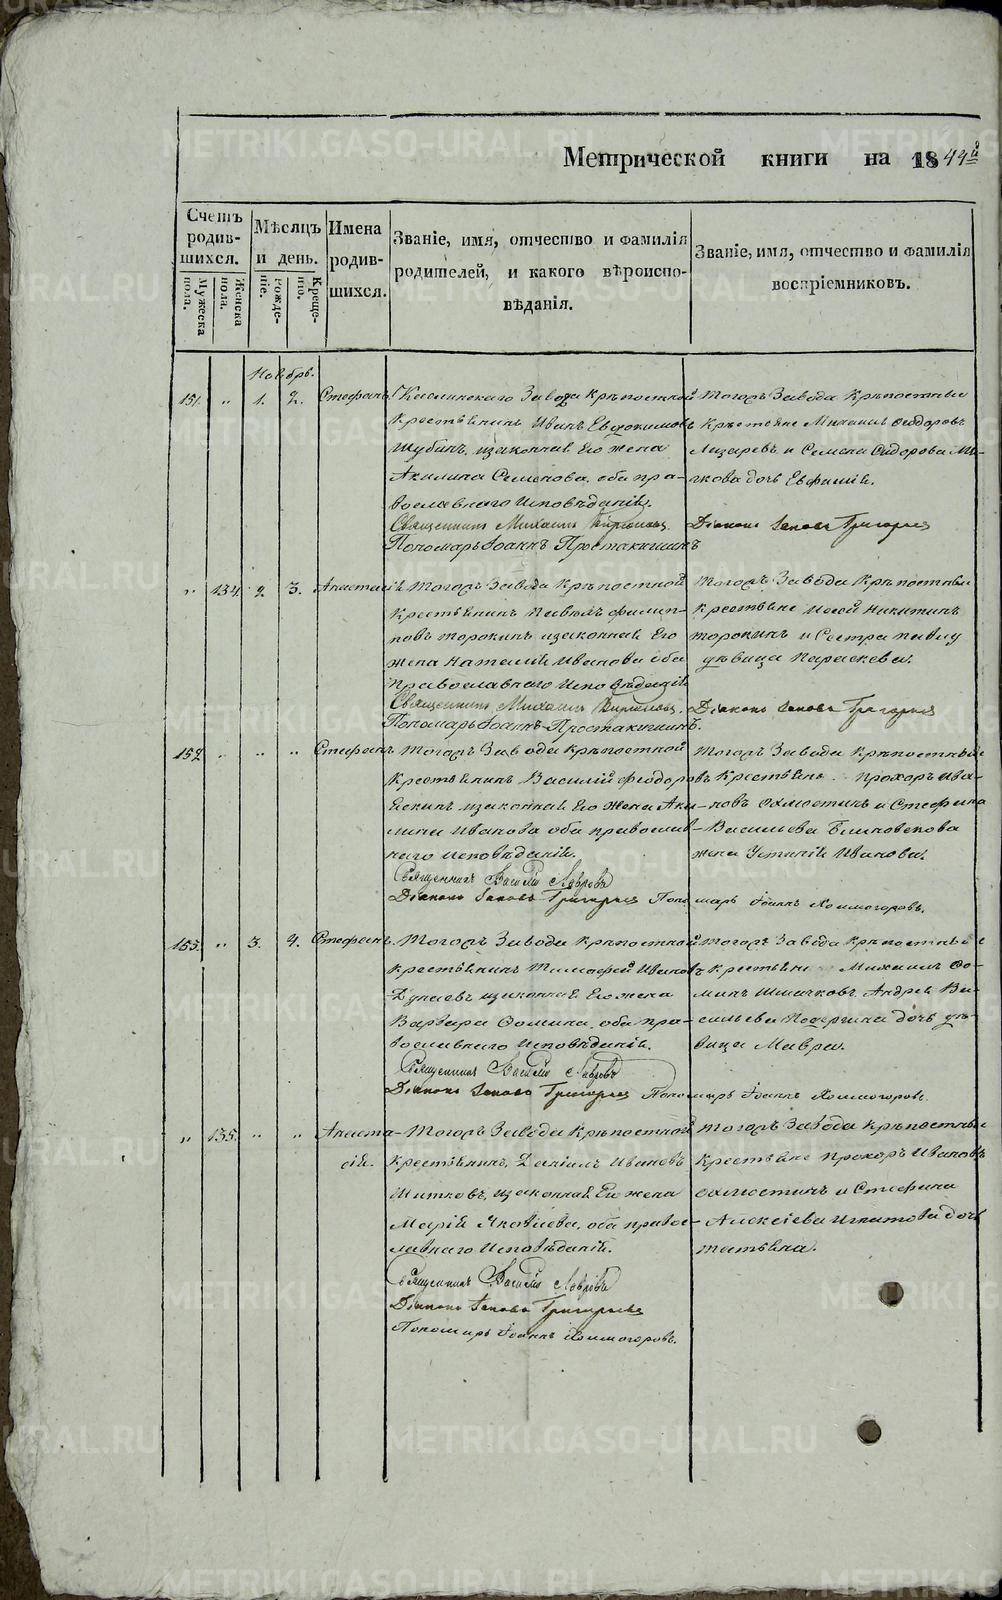 METRIKI.GASO-URAL.RU
Метрической книги на 1849й
Счетъ родив-шихся.
Мѣсяцъ и день.
Имена родив-шихся.
Званіе, имя, отчество и фамилія родителей, и какого вѣроиспо-вѣданія.
Званіе, имя, отчество и фамилія воспріемниковъ.
Мужеска пола.
Женска пола.
Рожде-ніе.
Креще-ніе.
Ноябрь.
151. " 1. 2. Стефанъ.
Каслинскаго Завода Крѣпостной
Крестьянинъ Иванъ Евдокимовъ
Шубинъ, изаконная Его жена
Акилина Семенова, оба пра-
вославнаго Исповѣданія.
Священникъ Михаилъ
Пономарь Іоаннъ Простакишинъ
Тогожъ Завода Крѣпостные
Крестьяне Михаилъ Ѳеодоровъ
Лазаревъ и Семена Сидорова
дочь Евфимія.
Діаконъ Іаковъ Григорьевъ
" 134 2 3. Анастасія
Тогожъ Завода Крѣпостной
Крестьянинъ Павелъ Филип-
повъ Торокинъ изаконная Его
жена Наталія Иванова оба
Православнаго Исповѣданія
Священникъ Михаилъ
Пономарь Іоаннъ Простакишинъ.
Тогожъ Завода Крѣпостные
Крестьяне Никитинъ
Торокинъ и Сестра
дѣвица Параскева.
Діаконъ Іаковъ Григорьевъ
152 " " " Стефанъ.
Тогожъ Завода Крѣпостной
Крестьянинъ Василій Ѳеодоровъ
изаконная Его Жена Аки-
лина Иванова оба православ-
наго исповѣданія.
Священникъ Василій Лавровъ
Діаконъ Іаковъ Григорьевъ
Тогожъ Завода Крѣпостные
Крестьяне Прохоръ Ива-
новъ Ахлюстинъ и Стефана
Васильева Блиновскова
жена Устинія Иванова.
Пономарь Іоаннъ Холмогоровъ.
153. " 3. 4. Стефанъ.
Тогожъ Завода Крѣпостной
Крестьянинъ Тимофей Ивановъ
Дунаевъ изаконная Его жена
Варвара Ѳомина, оба пра-
вославнаго Исповѣданія.
Священникъ Василій Лавровъ
Діаконъ Іаковъ Григорьевъ
Тогожъ Завода Крѣпостные
Крестьяне Михаилъ Ѳо-
минъ Андрея Ва-
сильева дочь дѣ-
вица Мавра.
Пономарь Іоаннъ Холмогоровъ.
" 135. " " Анаста-
сія.
Тогожъ Завода Крѣпостной
Крестьянинъ, Даніилъ Ивановъ
Шитковъ, изаконная Его жена
Марія Яковлева, оба право-
славнаго Исповѣданія.
Священникъ Василій Лавровъ
Діаконъ Іаковъ Григорьевъ
Пономарь Іоаннъ Холмогоровъ.
Тогожъ Завода Крѣпостные
Крестьяне Прохоръ Ивановъ
Ахлюстинъ и Стефана
Алексіева Игнатова дочь
Татьяна.